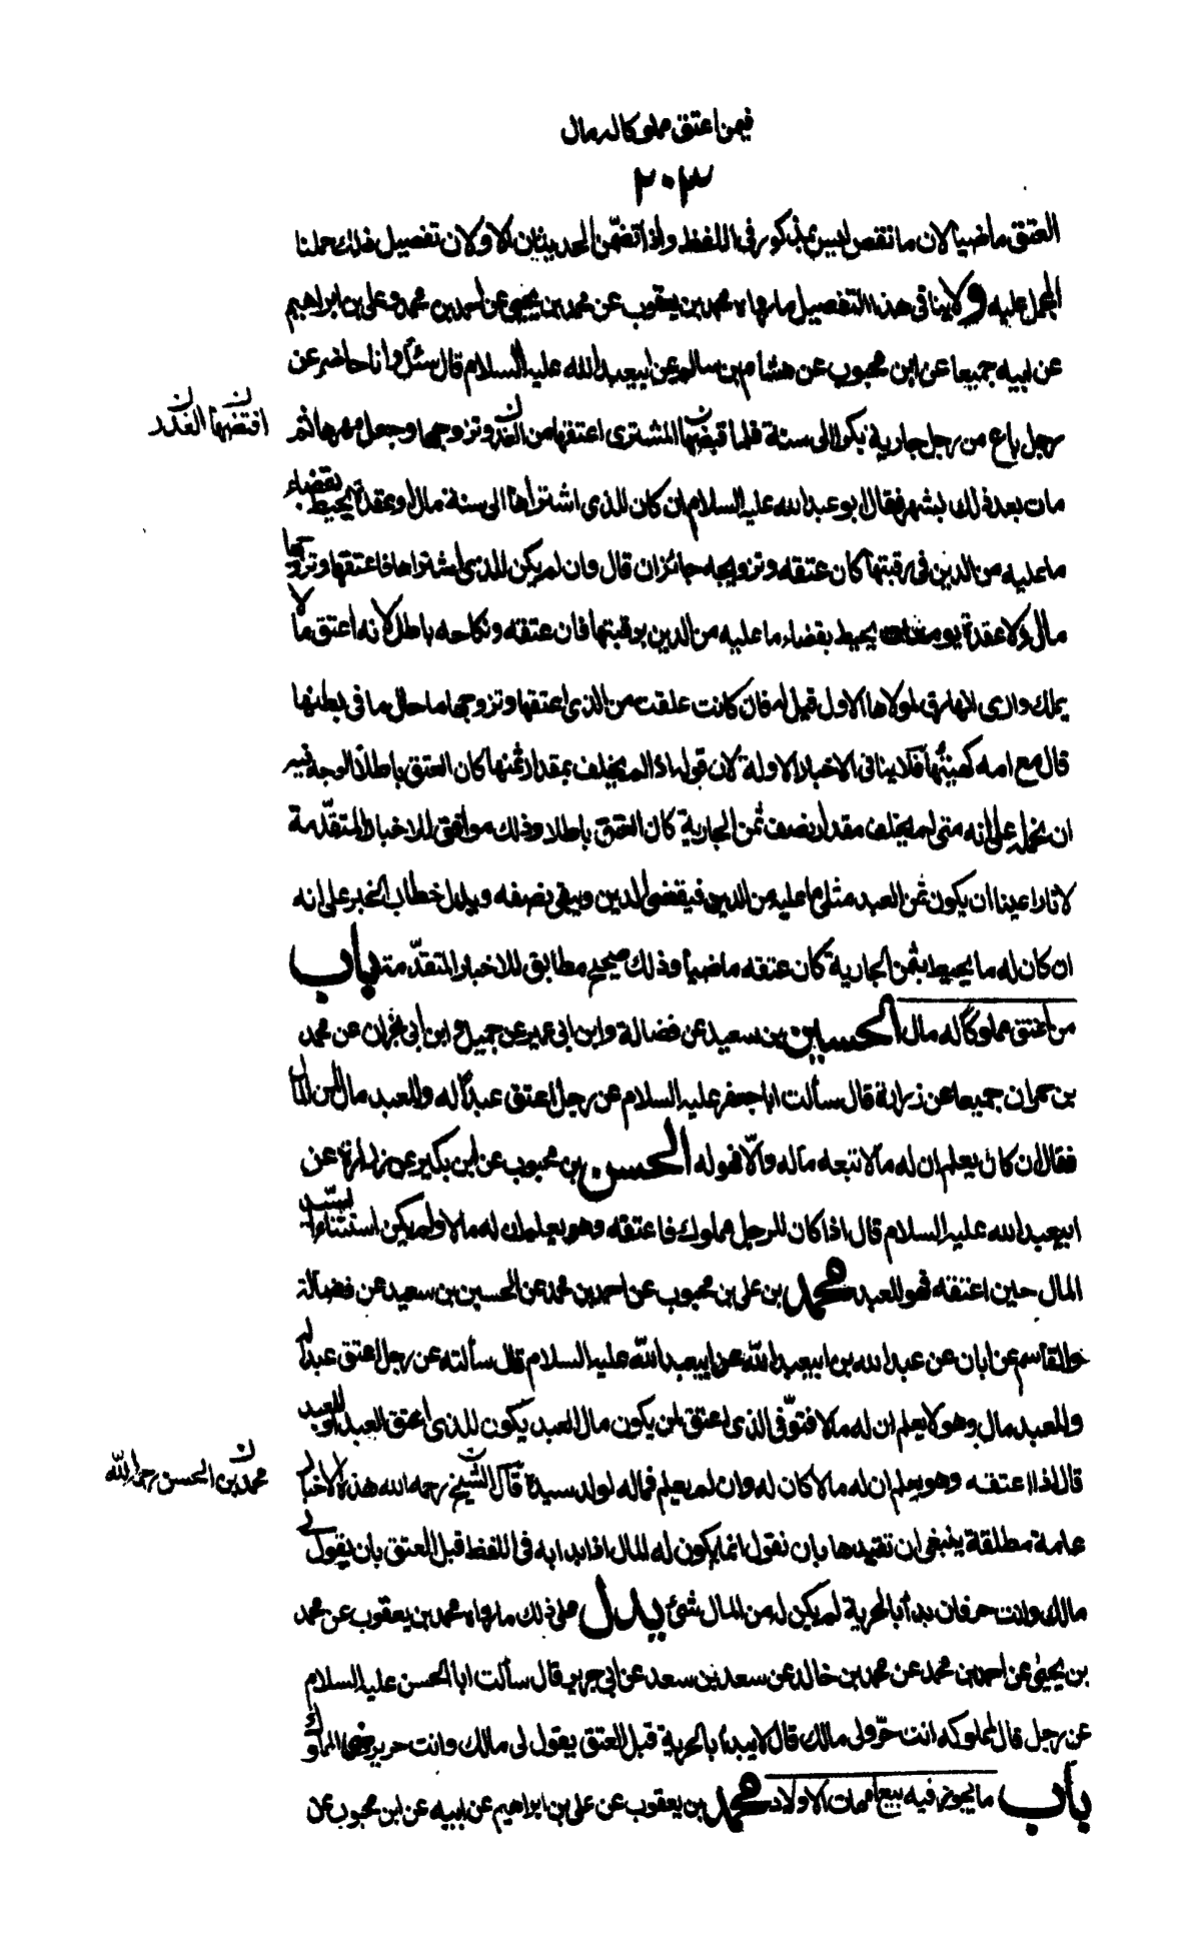 فيمن اعتق مملوكا له مال
٢٠٣
العتق ماضيا لان ما نقص ليس بمذكور فى اللفظ واذا تضمّن الحديثان الاولان تفصيل ذلك حملنا
المجمل عليه ولا ينافى هذا التفصيل ما رواه محمد بن يعقوب عن محمد بن يحيى عن احمد بن محمد وعلى بن ابراهيم
عن ابيه جميعا عن ابن محبوب عن هشام بن سالم عن ابيعبد الله عليه السلام قال سئل وانا حاضر عن
رجل باع من رجل جارية بكرا الى سنة فلما قبضها المشترى اعتقها من الغد وتزوجها وجعل مهرها ثم
افتضها ن الغد ن
مات بعد ذلك بشهر فقال ابو عبد الله عليه السلام ان كان للذى اشتراها الى سنة مال او عقدة تحيط بقضاء
ما عليه من الدين فى رقبتها كان عتقه وتزويجه جائزان قال وان لم يكن للذى اشتراها فاعتقها وتزوجها
مال ولا عقدة يوم مات يحيط بقضاء ما عليه من الدين برقبتها فان عتقه ونكاحه باطل لانه اعتق ما لا
يملك وارى انها رق لمولاها الاول قيل له فان كانت علقت من الذى اعتقها وتزوجها ما حال ما فى بطنها
قال مع امه كهيئتها فلا ينافى الاخبار الاولة لان قوله اذا لم يخلف بمقدار ثمنها كان العتق باطلا الوجه فيه
ان نحمله على انه متى لم يخلف مقدار نصف ثمن الجارية كان العتق باطلا وذلك موافق للاخبار المتقدّمة
لانا راعينا ان يكون ثمن العبد مثلى ما عليه من الدين فيقضى الدين ويبقى نصفه ويدل خطاب الخبر على انه
ان كان له ما يحيط بثمن الجارية كان عتقه ماضيا وذلك صحيح مطابق للاخبار المتقدّمة باب
من اعتق مملوكا له مال الحسين بن سعيد عن فضالة وابن ابى عمير عن جميل وابن ابى نجران عن محمد
بن حمران جميعا عن زرارة قال سألت ابا جعفر عليه السلام عن رجل اعتق عبدا له وللعبد مال لمن المال
فقال ان كان يعلم ان له مالا تبعه ماله والّا فهو له الحسن بن محبوب عن ابن بكير عن زرارة عن
ابيعبد الله عليه السلام قال اذا كان للرجل مملوك فاعتقه وهو يعلم ان له مالا ولم يكن استثنى السيد
المال حين اعتقه فهو للعبد محمد بن على بن محبوب عن احمد بن محمد عن الحسين بن سعيد عن فضالة
والقاسم عن ابان عن عبد الله بن ابيعبد الله عن ابيعبد الله عليه السلام قال سألته عن رجل اعتق عبدا له
وللعبد مال وهو لا يعلم ان له مالا فتوفّى الذى اعتق لمن يكون مال العبد يكون للذى اعتق العبد او للعبد
قال اذا اعتقه وهو يعلم ان له مالا كان له وان لم يعلم فماله لولد سيده قال الشيخ رحمه الله هذه الاخبار
محمد بن الحسن رحمه الله ن
عامة مطلقة ينبغى ان نقيدها بان نقول انما يكون له المال اذا بدا به فى اللفظ قبل العتق بان يقول لى
مالك وانت حر فان بدأ بالحرية لم يكن له من المال شئ يدل على ذلك ما رواه محمد بن يعقوب عن محمد
بن يحيى عن احمد بن محمد عن محمد بن خالد عن سعد بن سعد عن ابى جرير قال سألت ابا الحسن عليه السلام
عن رجل قال لمملوكه انت حرّ ولى مالك قال لا يبدا بالحرية قبل العتق يقول لى مالك وانت حر برضى المملوك
باب ما يجوز فيه بيع امهات الاولاد محمد بن يعقوب عن على بن ابراهيم عن ابيه عن ابن محبوب عن